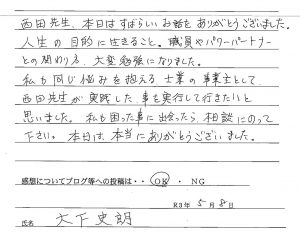 西田先生、本日はすばらしいお話をありがとうございました。
人生の目的に生きること。職員やパワーパートナー
との関わり方、大変勉強になりました。
私も同じ悩みを抱える士業の事業主として
西田先生が実践した事を実行して行きたいと
思いました。私も困った事に出会ったら、相談にのって
下さい。本日は、本当にありがとうございました。
感想についてブログ等への投稿は・・ OK ・ NG
R3年 5月 8日
氏名 大下史朗